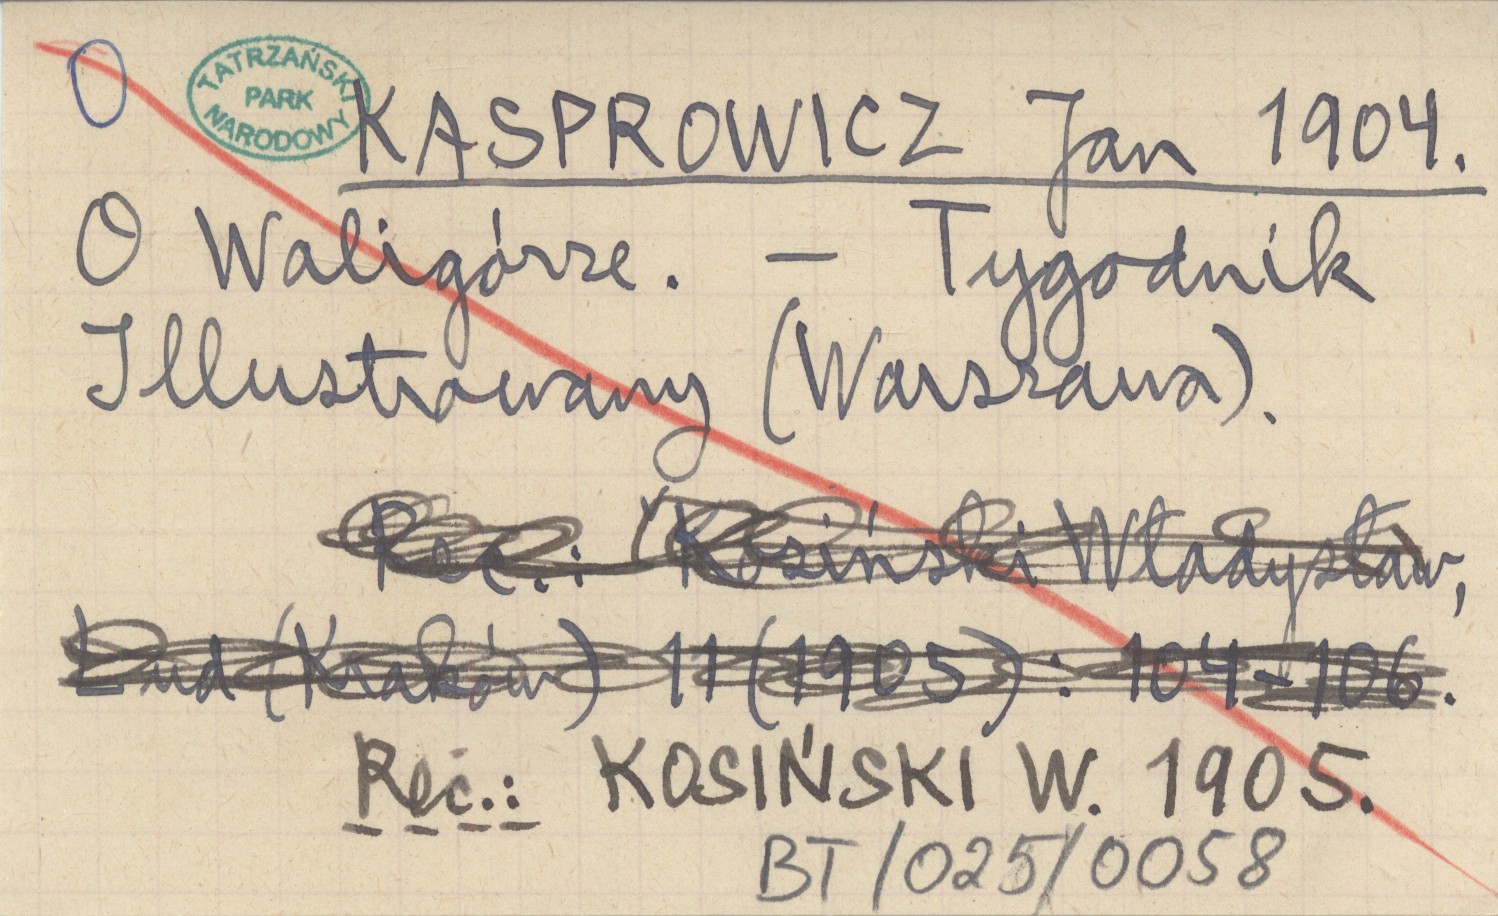 TATRZAŃSKI
PARK
NARODOWY
KASPROWICZ Jan 1904.
O Waligórze. — Tygodnik
Illustrowany (Warszawa).
Rec.: (Kosiński Władysław,
Lud (Kraków) 11 (1905): 104-106.
Rec.: KOSIŃSKI W. 1905.
BT/025/0058